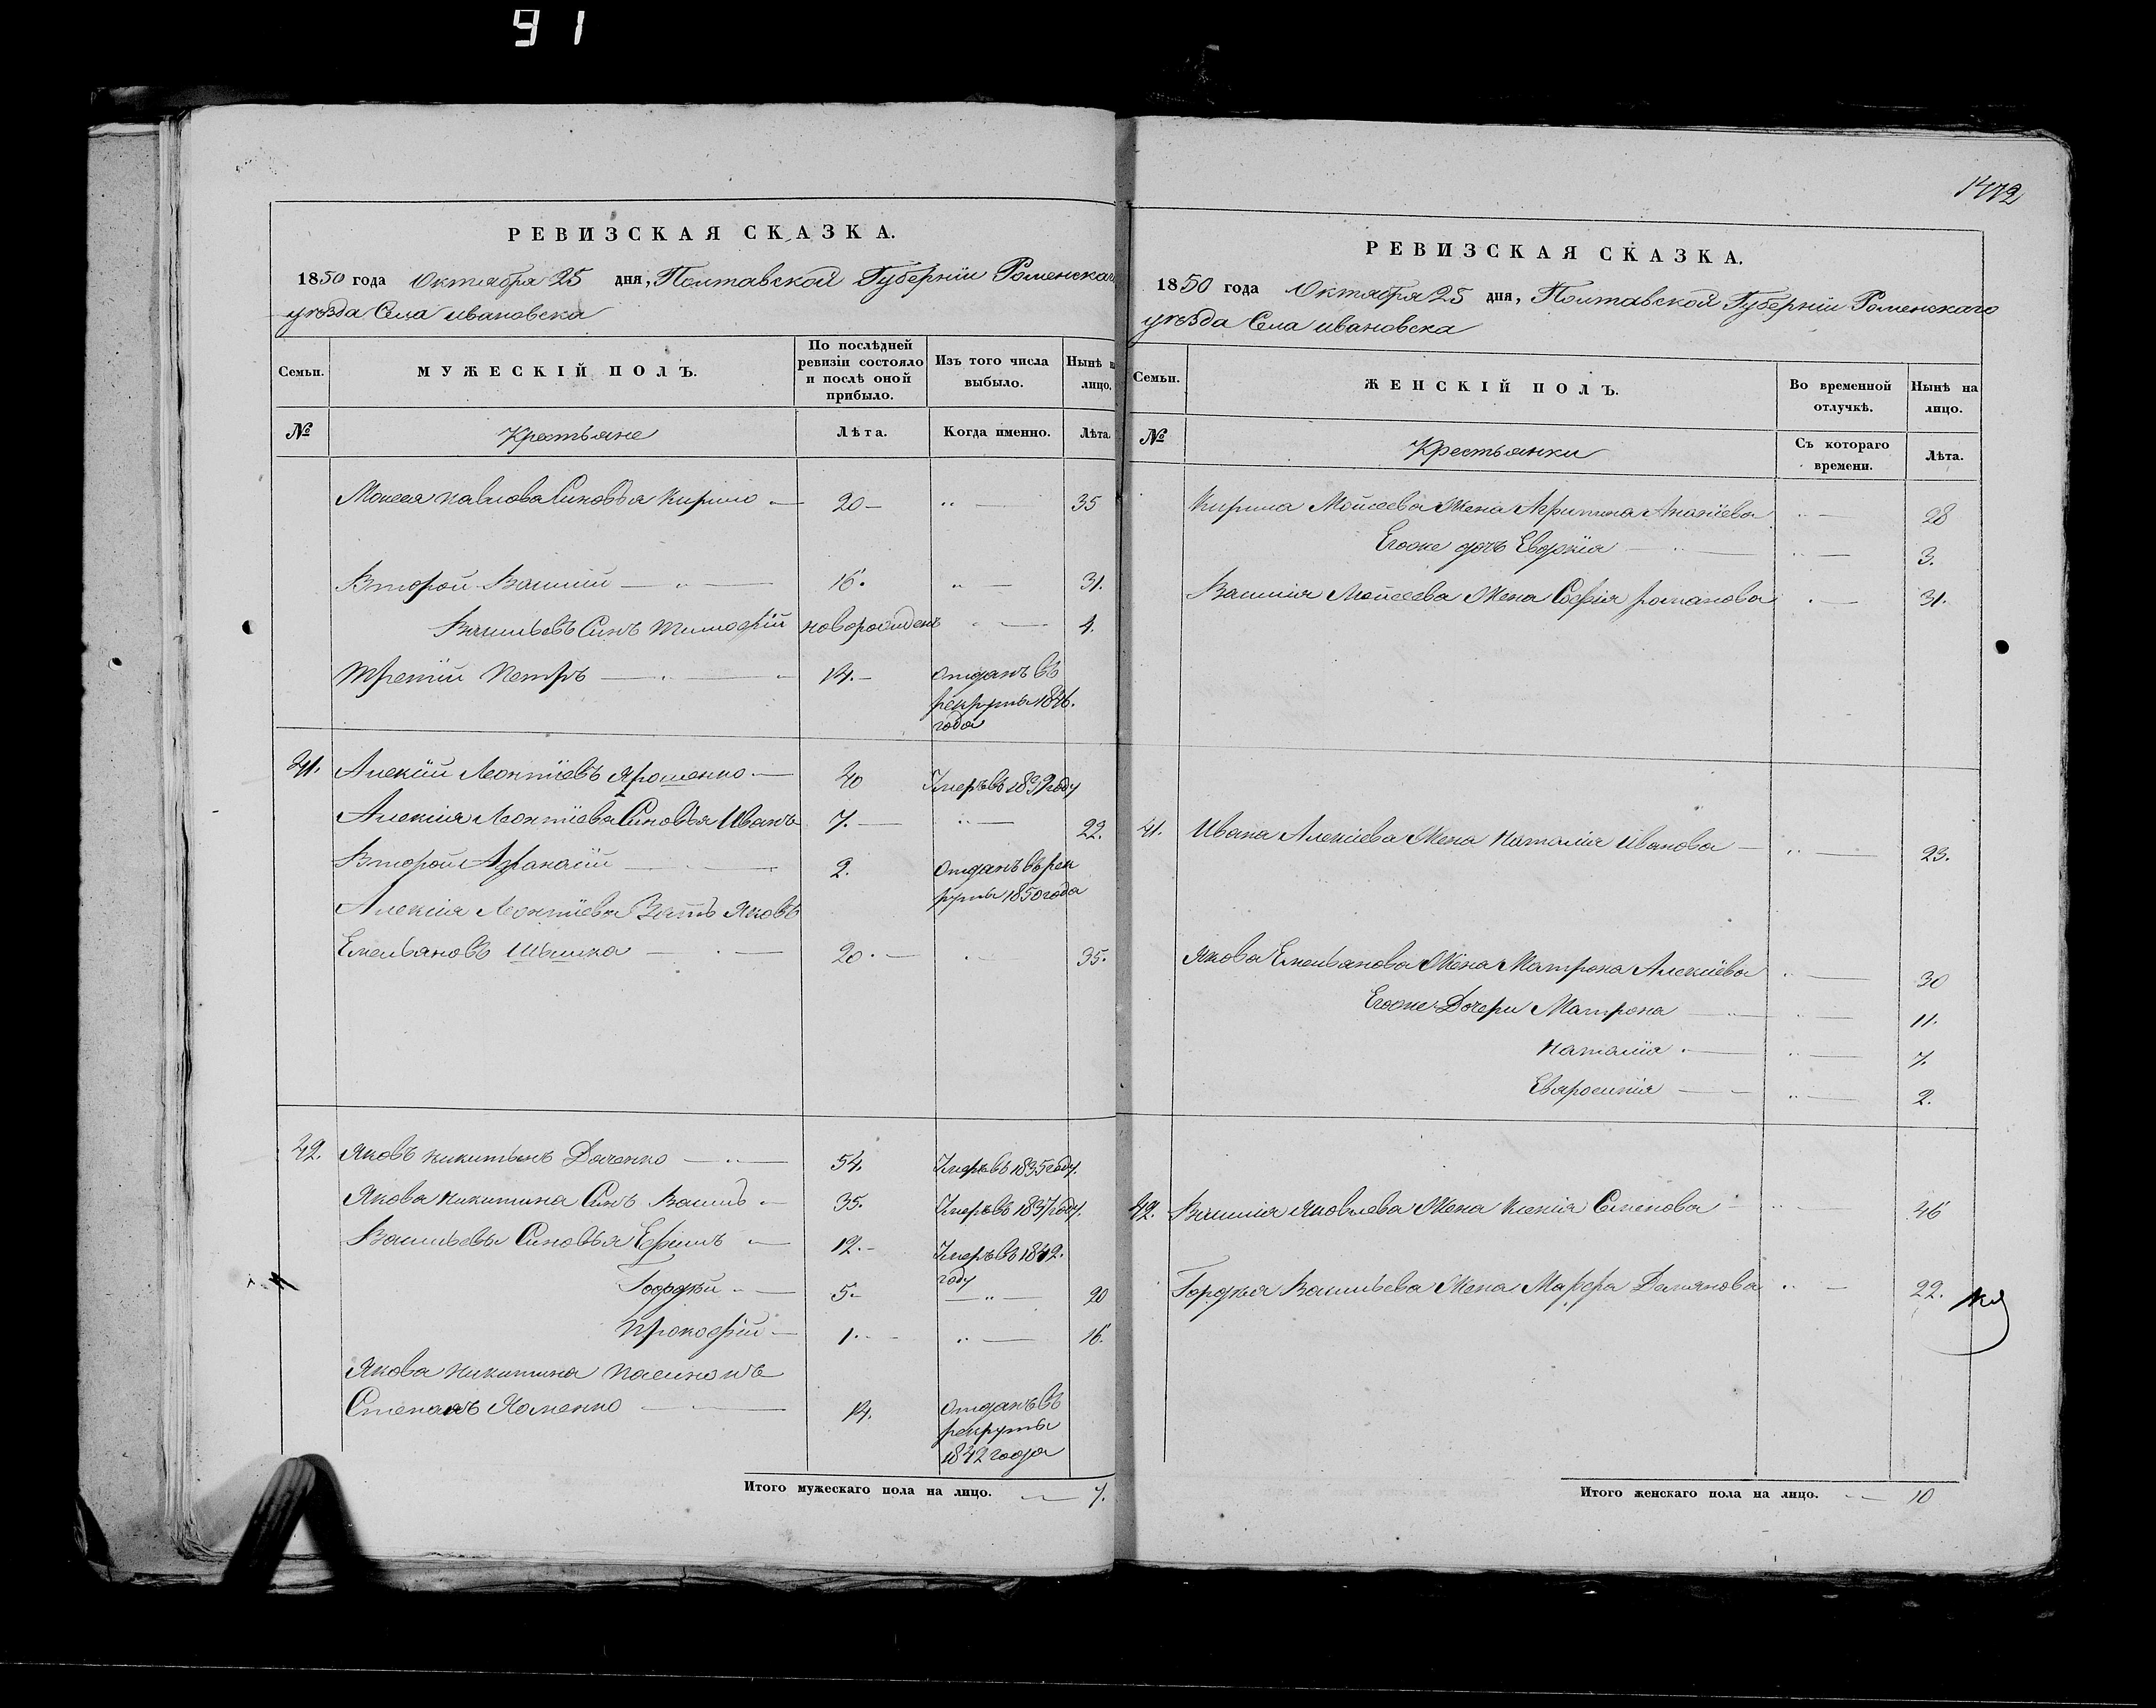 91
1472
РЕВИЗСКАЯ СКАЗКА.
1850 года Октября 25 дня, Полтавской Губерніи Роменскаго
уѣзда Села ивановска
Семьи.
МУЖЕСКІЙ ПОЛЪ.
По послѣдней ревизіи состояло и послѣ оной прибыло.
Изъ того числа выбыло.
Нынѣ н лицо.
№
Крестьяне
Лѣта.
Когда именно.
Лѣта.
Моисея павлова Синовья Кирило — 20 — „ — 35
Второй Василий — „ — 16. „ — 31.
Васильевъ Синъ тимофій новорожденъ „ — 4.
третий Петръ — „ — 14. — отданъ въ
рекруты 1846.
года
41. Алексій Леонтіевъ Ярошенко — 40 Умеръ въ 1839 году
Алексія Леонтіева Синовья Иванъ 7. — „ — 22.
Второй Афанасій — 2. отданъ въ рек
руты 1850 года
Алексія Леонтіева Зятъ Яковъ
Емельяновъ Шишка — „ — 20. — „ — 35.
42. Яковъ никитинъ Даченко — „ — 54. Умеръ въ 1835 году.
Якова никитина Синъ Василь — 35. Умеръ въ 1837 году.
Васильевы Синовья Ефимъ — 12. — Умеръ въ 1842.
году
Гордѣй — 5 — — „ — 20
Прокофій — 1. — „ — 16.
Якова никитина пасинокъ
Степанъ Хоменко — 14. отданъ въ
рекруты
1842 года
Итого мужескаго пола на лицо. — 7.
РЕВИЗСКАЯ СКАЗКА.
1850 года Октября 25 дня, Полтавской Губерніи Роменскаго
уѣзда Села ивановска
Семьи.
ЖЕНСКІЙ ПОЛЪ.
Во временной отлучкѣ.
Нынѣ на лицо.
№
Крестьянки
Съ котораго времени.
Лѣта.
Кирила Моисеева Жена Агрипина Ананіева „ — 28
Егоже дочъ Евдокія — „ — „ — 3.
Василия Моисеева Жена Софія романова „ — 31.
41. Ивана Алексіева Жена Наталія иванова — „ — 23.
Якова Емельянова Жена Матрона Алексіева „ — 30
Егоже Дочери Матрона — „ — „ — 11.
Наталія — „ — 7.
Евфросинія — „ — 2.
42. Василия Яковлева Жена Ксенія Семенова — „ — 46
Гордѣя Васильева Жена Марфа Демянова „ — 22.
Итого женскаго пола на лицо. — 10